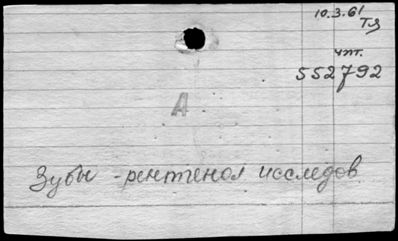 10.3.61
Тя
чит.
552792
А
Зубы - рентгенол исследов